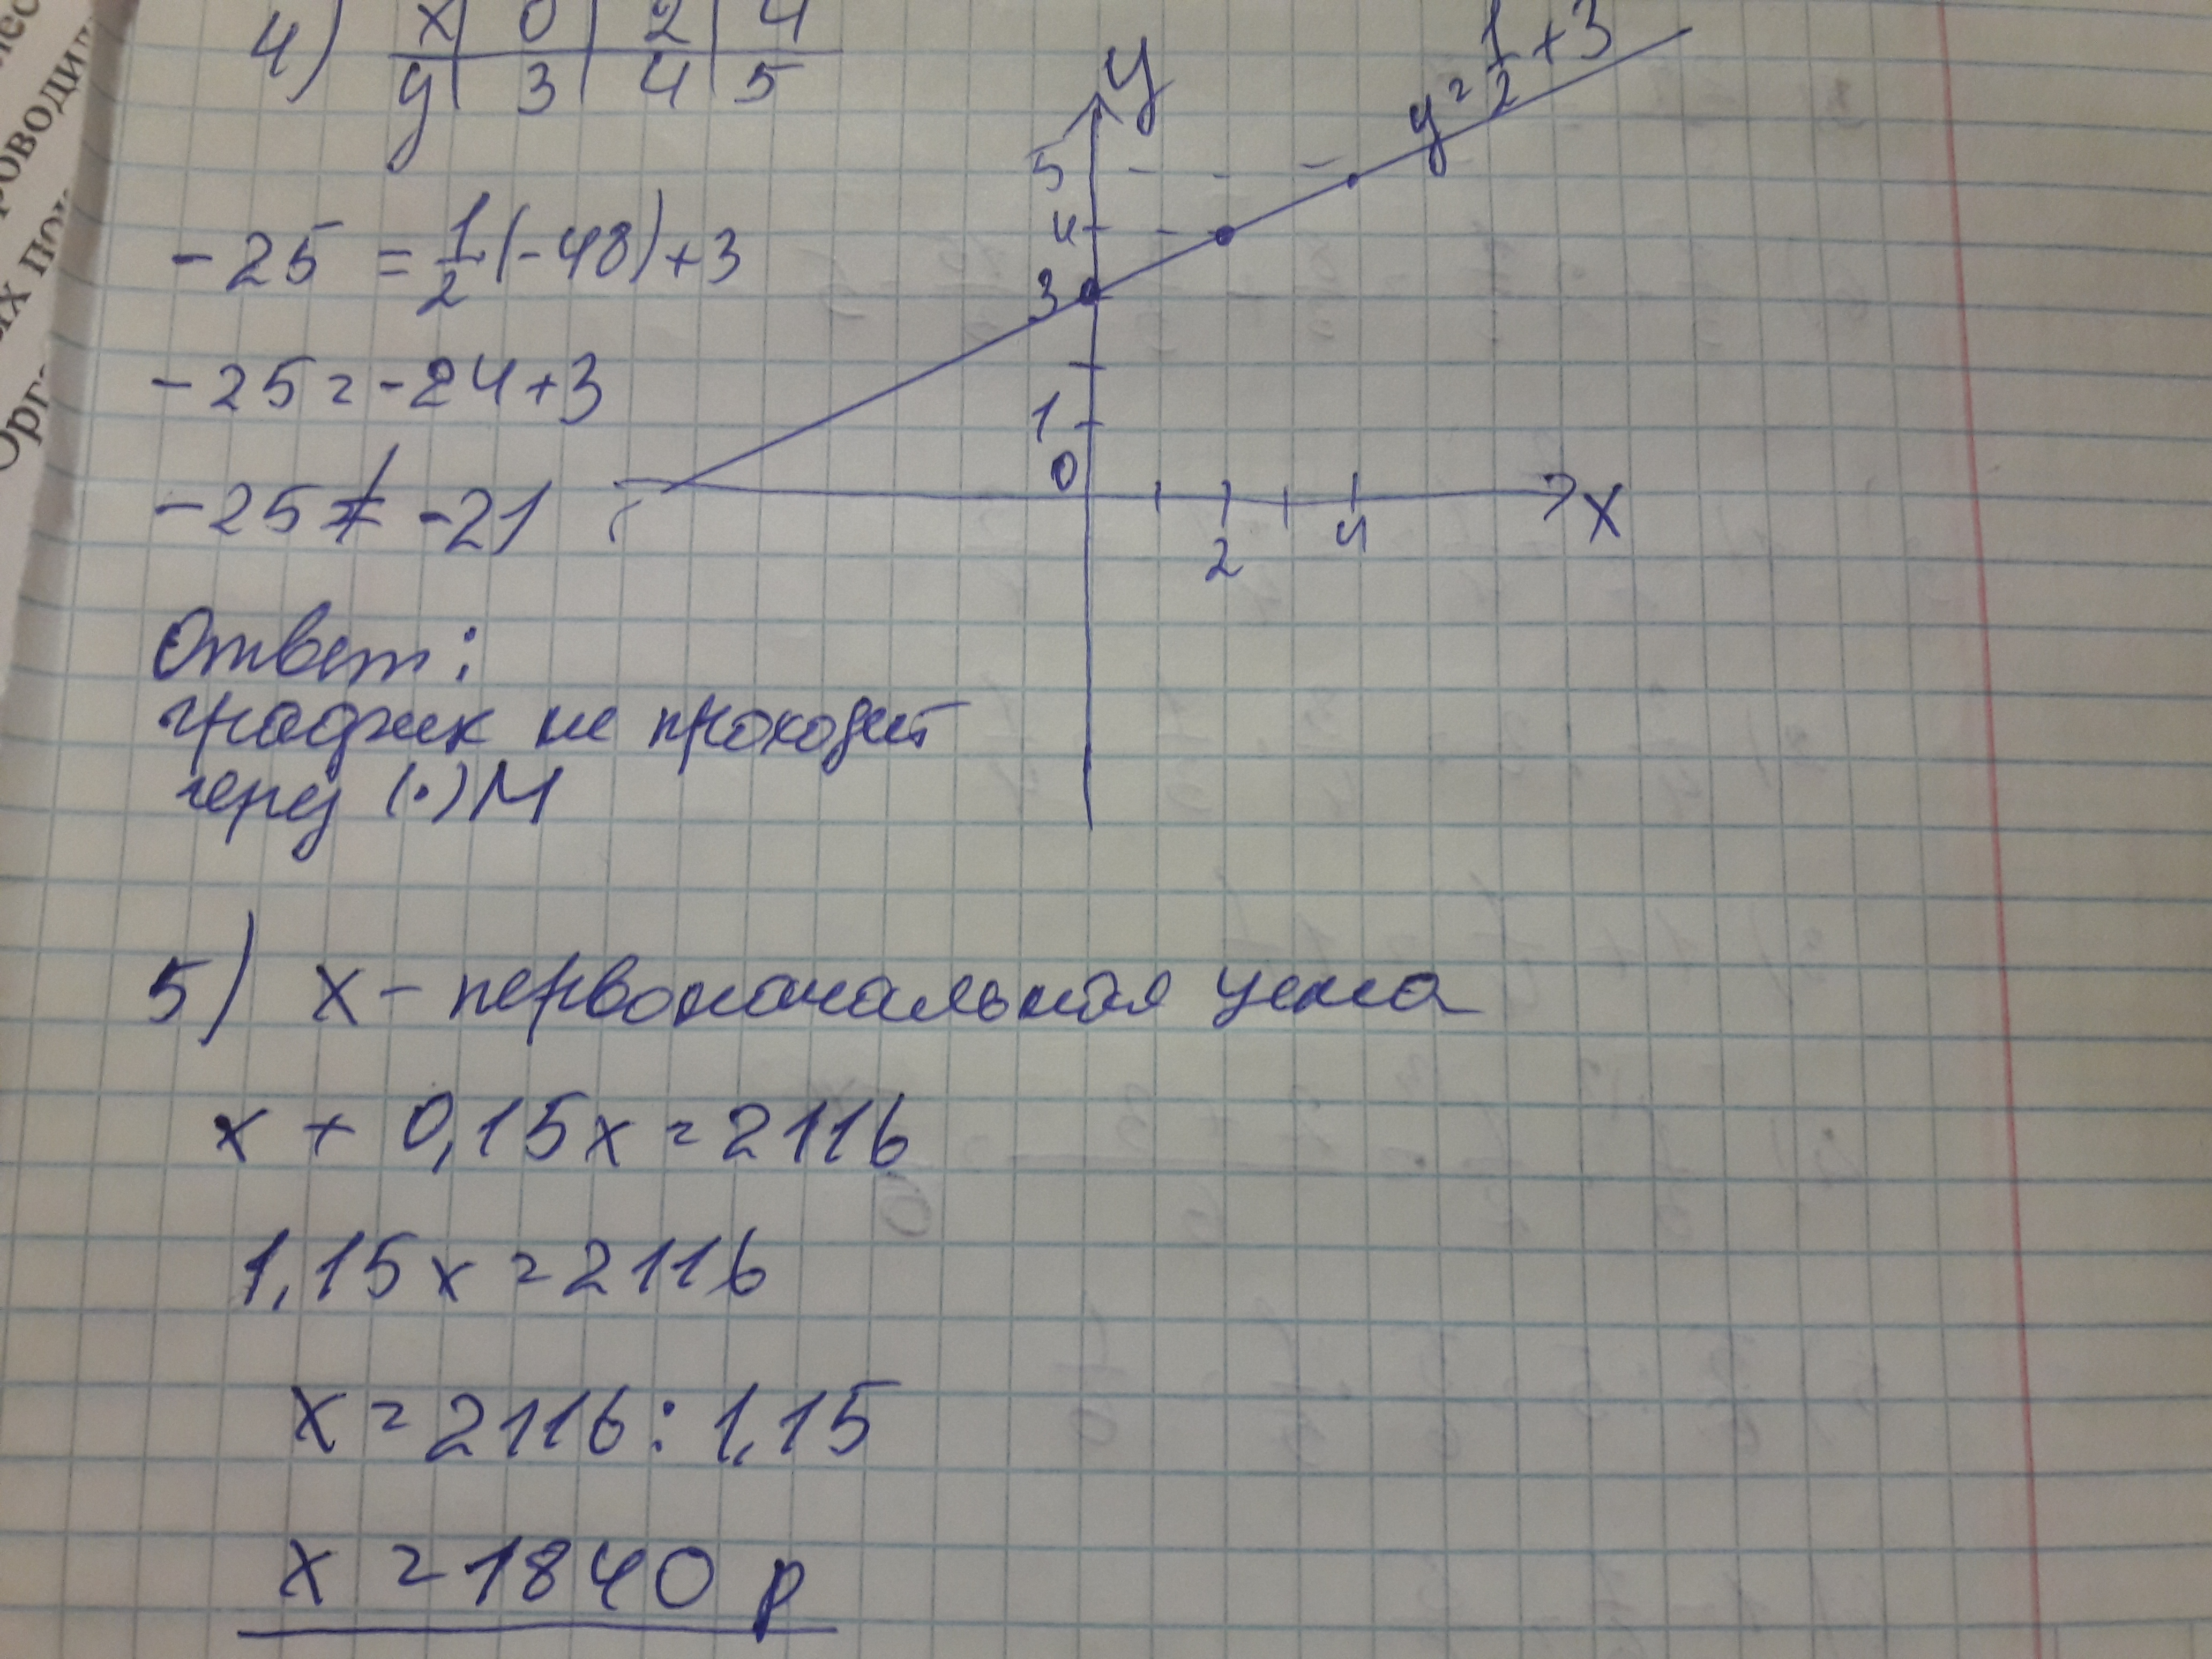 4) x | 0 | 2 | 4
y | 3 | 4 | 5
y
y = 1/2 + 3
5
4
3
1
0
2
4
x
-25 = 1/2 (-48) + 3
-25 = -24 + 3
-25 ≠ -21
Ответ:
график не проходит
через (·) М
5) х - первоначальная цена
х + 0,15х = 2116
1,15х = 2116
х = 2116 : 1,15
х = 1840 р